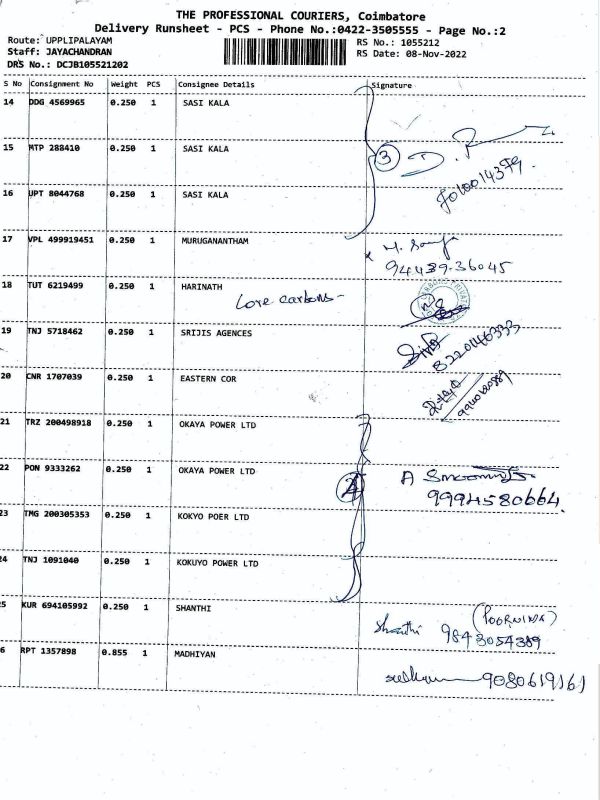 THE PROFESSIONAL COURIERS, Coimbatore
Delivery Runsheet - PCS - Phone No.:0422-3505555 - Page No.:2
Route: UPPLIPALAYAM RS No.: 1055212
Staff: JAYACHANDRAN RS Date: 08-Nov-2022
DRS No.: DCJB105521202
S No Consignment No Weight PCS Consignee Details Signature
14 DDG 4569965 0.250 1 SASI KALA
15 MTP 288410 0.250 1 SASI KALA 3
16 UPT 8044768 0.250 1 SASI KALA
17 VPL 499919451 0.250 1 MURUGANANTHAM
94439-36045
18 TUT 6219499 0.250 1 HARINATH
Love carbons-
19 TNJ 5718462 0.250 1 SRIJIS AGENCES
8220146333
20 CNR 1707039 0.250 1 EASTERN COR
21 TRZ 200498918 0.250 1 OKAYA POWER LTD
22 PON 9333262 0.250 1 OKAYA POWER LTD
9994580664
23 TMG 200305353 0.250 1 KOKYO POER LTD
24 TNJ 1091040 0.250 1 KOKUYO POWER LTD
25 KUR 694105992 0.250 1 SHANTHI (POORNIMA)
Shanthi 9843054389
6 RPT 1357898 0.855 1 MADHIYAN
9080619161